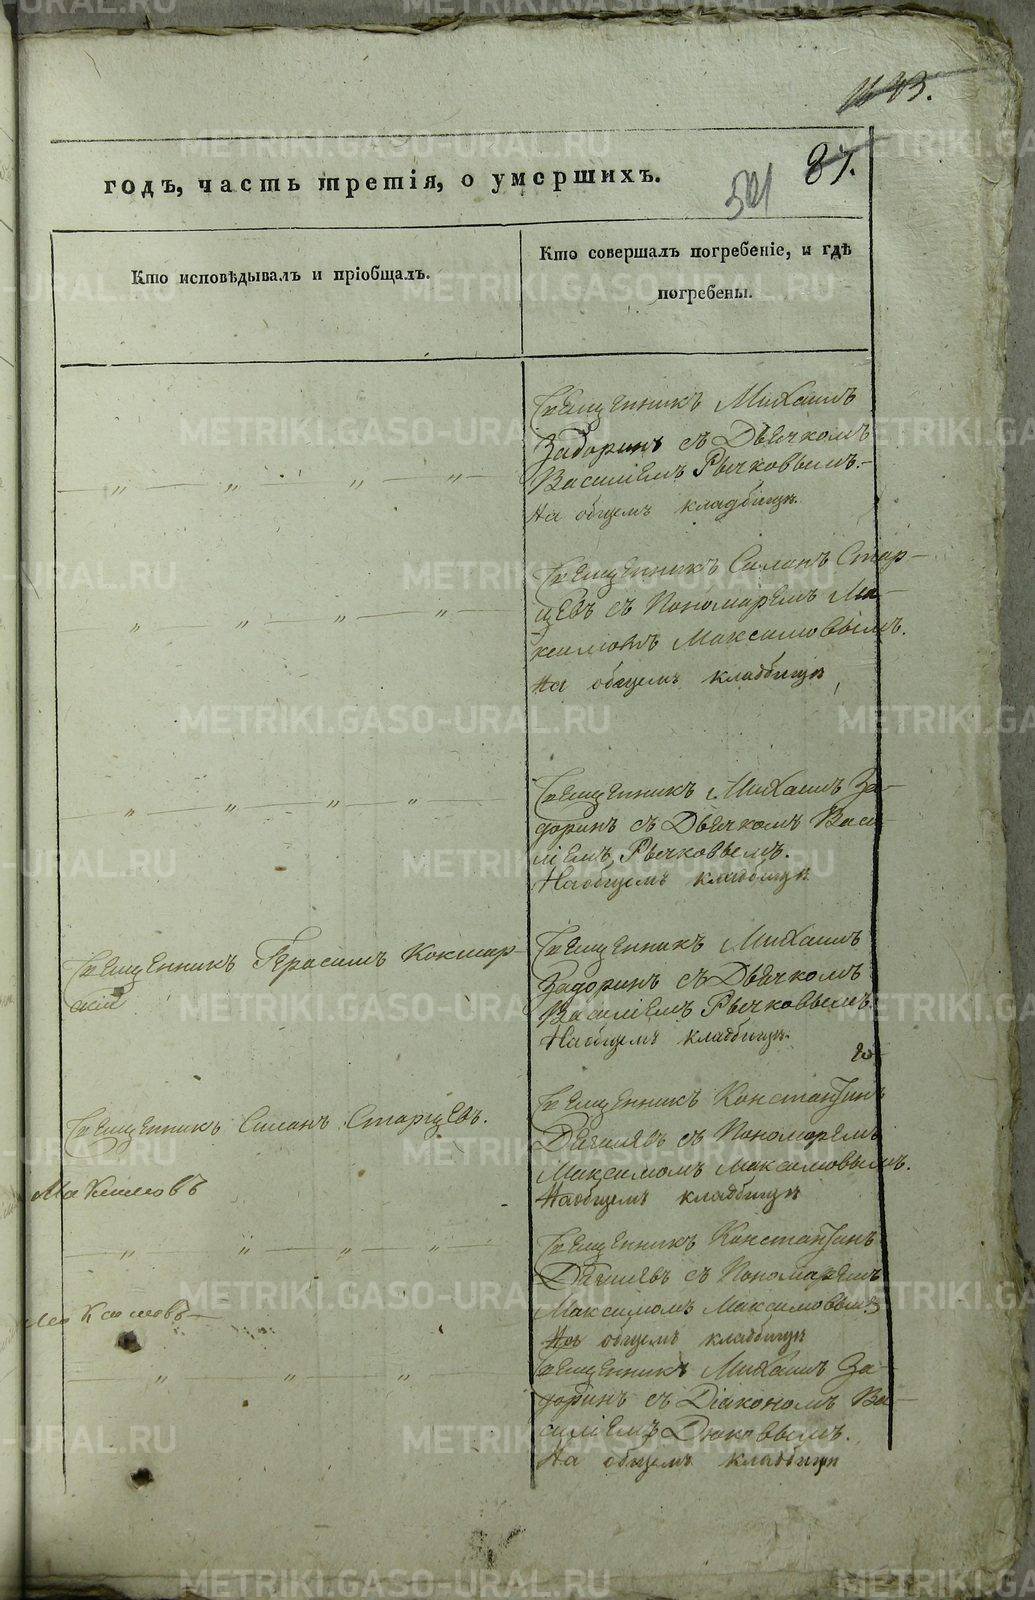 87.
501
годъ, часть третія, о умершихъ.
Кто исповѣдывалъ и пріобщалъ.
Кто совершалъ погребеніе, и гдѣ
погребены.
Священникъ Михаилъ
Задоринъ съ Дьячкомъ
Василіемъ Рычковымъ.-
На общемъ кладбищѣ.
Священникъ Симонъ Стар-
цевъ съ Пономаремъ Ма-
ксимомъ Максимовымъ.
На общемъ кладбищѣ
Священникъ Михаилъ За-
доринъ съ Дьячкомъ Васи-
ліемъ Рычковымъ.
На общемъ кладбищѣ
Священникъ Герасимъ Кокшар-
скій
Священникъ Михаилъ
Задоринъ съ Дьячкомъ
Василіемъ Рычковымъ.
На общемъ кладбищѣ.
Священникъ Симонъ Старцевъ.
Священникъ Константинъ
Дягилевъ съ Пономаремъ
Максимомъ Максимовымъ.
На общемъ кладбищѣ
Священникъ Константинъ
Дягилевъ съ Пономаремъ
Максимомъ Максимовымъ
На общемъ кладбищѣ
Священникъ Михаилъ За-
доринъ съ Діакономъ Ва-
силіемъ
На общемъ кладбищѣ
METRIKI.GASO-URAL.RU